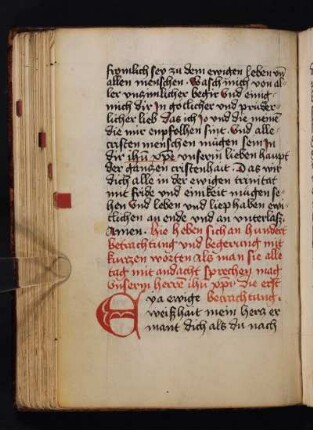 frümlich sey zu dem ewigen leben vn̄
allen menschen · Wasch mich von al-
ler vnzimlicher begir Vnd einig
mich dir Jn götlicher vnd prüder-
licher lieb Das ich Jo vnd die mein
die mir enpfolhen sint · Vnd alle
cristen menschen mügen sein Jn
dir ihū xp̄e vnserm lieben haupt
der ganzen cristenhait · Das wir
dich alle in der ewigen trinitat
mit fride vnd einikeit mügen se-
hen Vnd leben vnd liep haben ewi-
clichen an ende vnd an vnterlaß
Amen · Hie heben sich an hundert
betrachtung vnd begerung mit
kurzen worten Als man sie alle
tag mit andacht sprechen mag
Vnserm herrē ihū xp̄i Die erst
Eya ewige betrachtung ·
weißhait mein herz er
mant dich als du nach